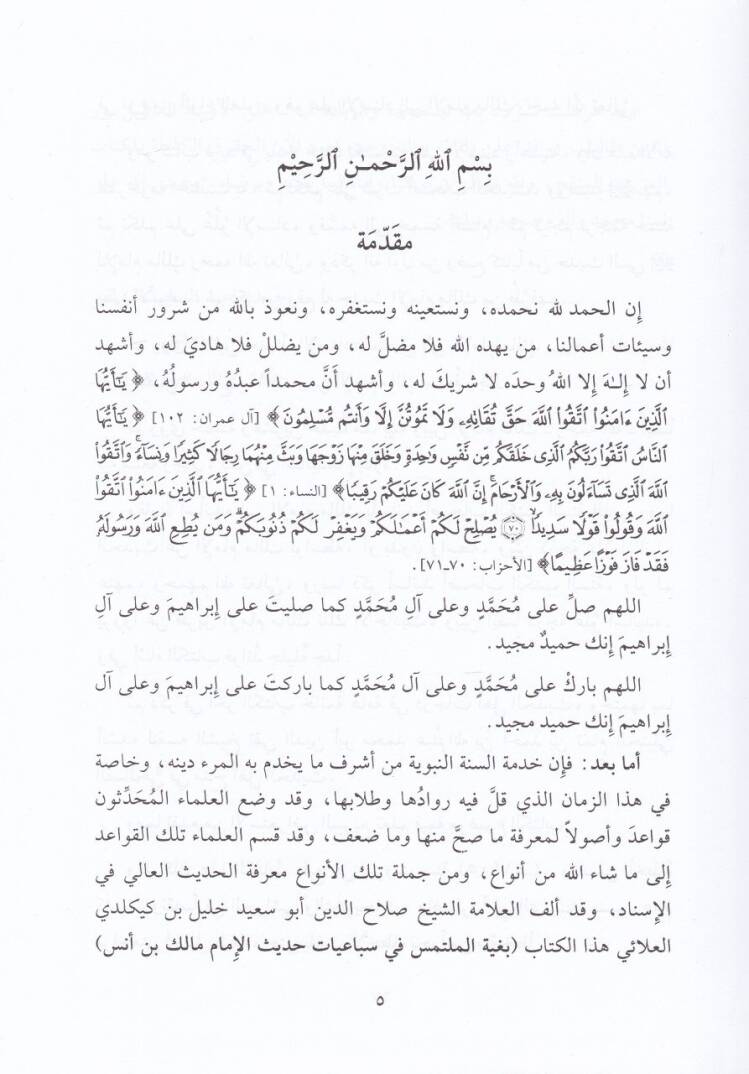 بِسْمِ ٱللهِ ٱلرَّحْمـٰنِ ٱلرَّحِيْمِ
مقَدّمَة
إِن الحمد لله نحمده، ونستعينه ونستغفره، ونعوذ بالله من شرور أنفسنا
وسيئات أعمالنا، من يهده الله فلا مضلَّ له، ومن يضللْ فلا هاديَ له، وأشهد
أن لا إِلـٰهَ إِلا اللهُ وحدَه لا شريكَ له، وأشهد أنَّ محمداً عبدُهُ ورسولُهُ، ﴿ يَٰٓأَيُّهَا
ٱلَّذِينَ ءَامَنُوا۟ ٱتَّقُوا۟ ٱللَّهَ حَقَّ تُقَاتِهِۦ وَلَا تَمُوتُنَّ إِلَّا وَأَنتُم مُّسْلِمُونَ﴾ [آل عمران: ١٠٢] ﴿ يَٰٓأَيُّهَا
ٱلنَّاسُ ٱتَّقُوا۟ رَبَّكُمُ ٱلَّذِى خَلَقَكُم مِّن نَّفْسٍ وَٰحِدَةٍ وَخَلَقَ مِنْهَا زَوْجَهَا وَبَثَّ مِنْهُمَا رِجَالًا كَثِيرًا وَنِسَآءً ۚ وَٱتَّقُوا۟
ٱللَّهَ ٱلَّذِى تَسَآءَلُونَ بِهِۦ وَٱلْأَرْحَامَ ۚ إِنَّ ٱللَّهَ كَانَ عَلَيْكُمْ رَقِيبًا﴾ [النساء: ١] ﴿ يَٰٓأَيُّهَا ٱلَّذِينَ ءَامَنُوا۟ ٱتَّقُوا۟
ٱللَّهَ وَقُولُوا۟ قَوْلًا سَدِيدًا ۝٧٠ يُصْلِحْ لَكُمْ أَعْمَٰلَكُمْ وَيَغْفِرْ لَكُمْ ذُنُوبَكُمْ ۗ وَمَن يُطِعِ ٱللَّهَ وَرَسُولَهُۥ
فَقَدْ فَازَ فَوْزًا عَظِيمًا﴾ [الأحزاب: ٧٠-٧١].
اللهم صلِّ على مُحَمَّدٍ وعلى آل مُحَمَّدٍ كما صليتَ على إِبراهيمَ وعلى آلِ
إِبراهيمَ إِنك حميدٌ مجيد.
اللهم باركْ على مُحَمَّدٍ وعلى آل مُحَمَّدٍ كما باركتَ على إِبراهيمَ وعلى آل
إِبراهيمَ إِنك حميد مجيد.
أما بعد: فإِن خدمة السنة النبوية من أشرف ما يخدم به المرء دينه، وخاصة
في هذا الزمان الذي قلَّ فيه روادُها وطلابها، وقد وضع العلماء المُحَدِّثون
قواعدَ وأصولاً لمعرفة ما صحَّ منها وما ضعف، وقد قسم العلماء تلك القواعد
إِلى ما شاء الله من أنواع، ومن جملة تلك الأنواع معرفة الحديث العالي في
الإِسناد، وقد ألف العلامة الشيخ صلاح الدين أبو سعيد خليل بن كيكلدي
العلائي هذا الكتاب (بغية الملتمس في سباعيات حديث الإِمام مالك بن أنس)
٥